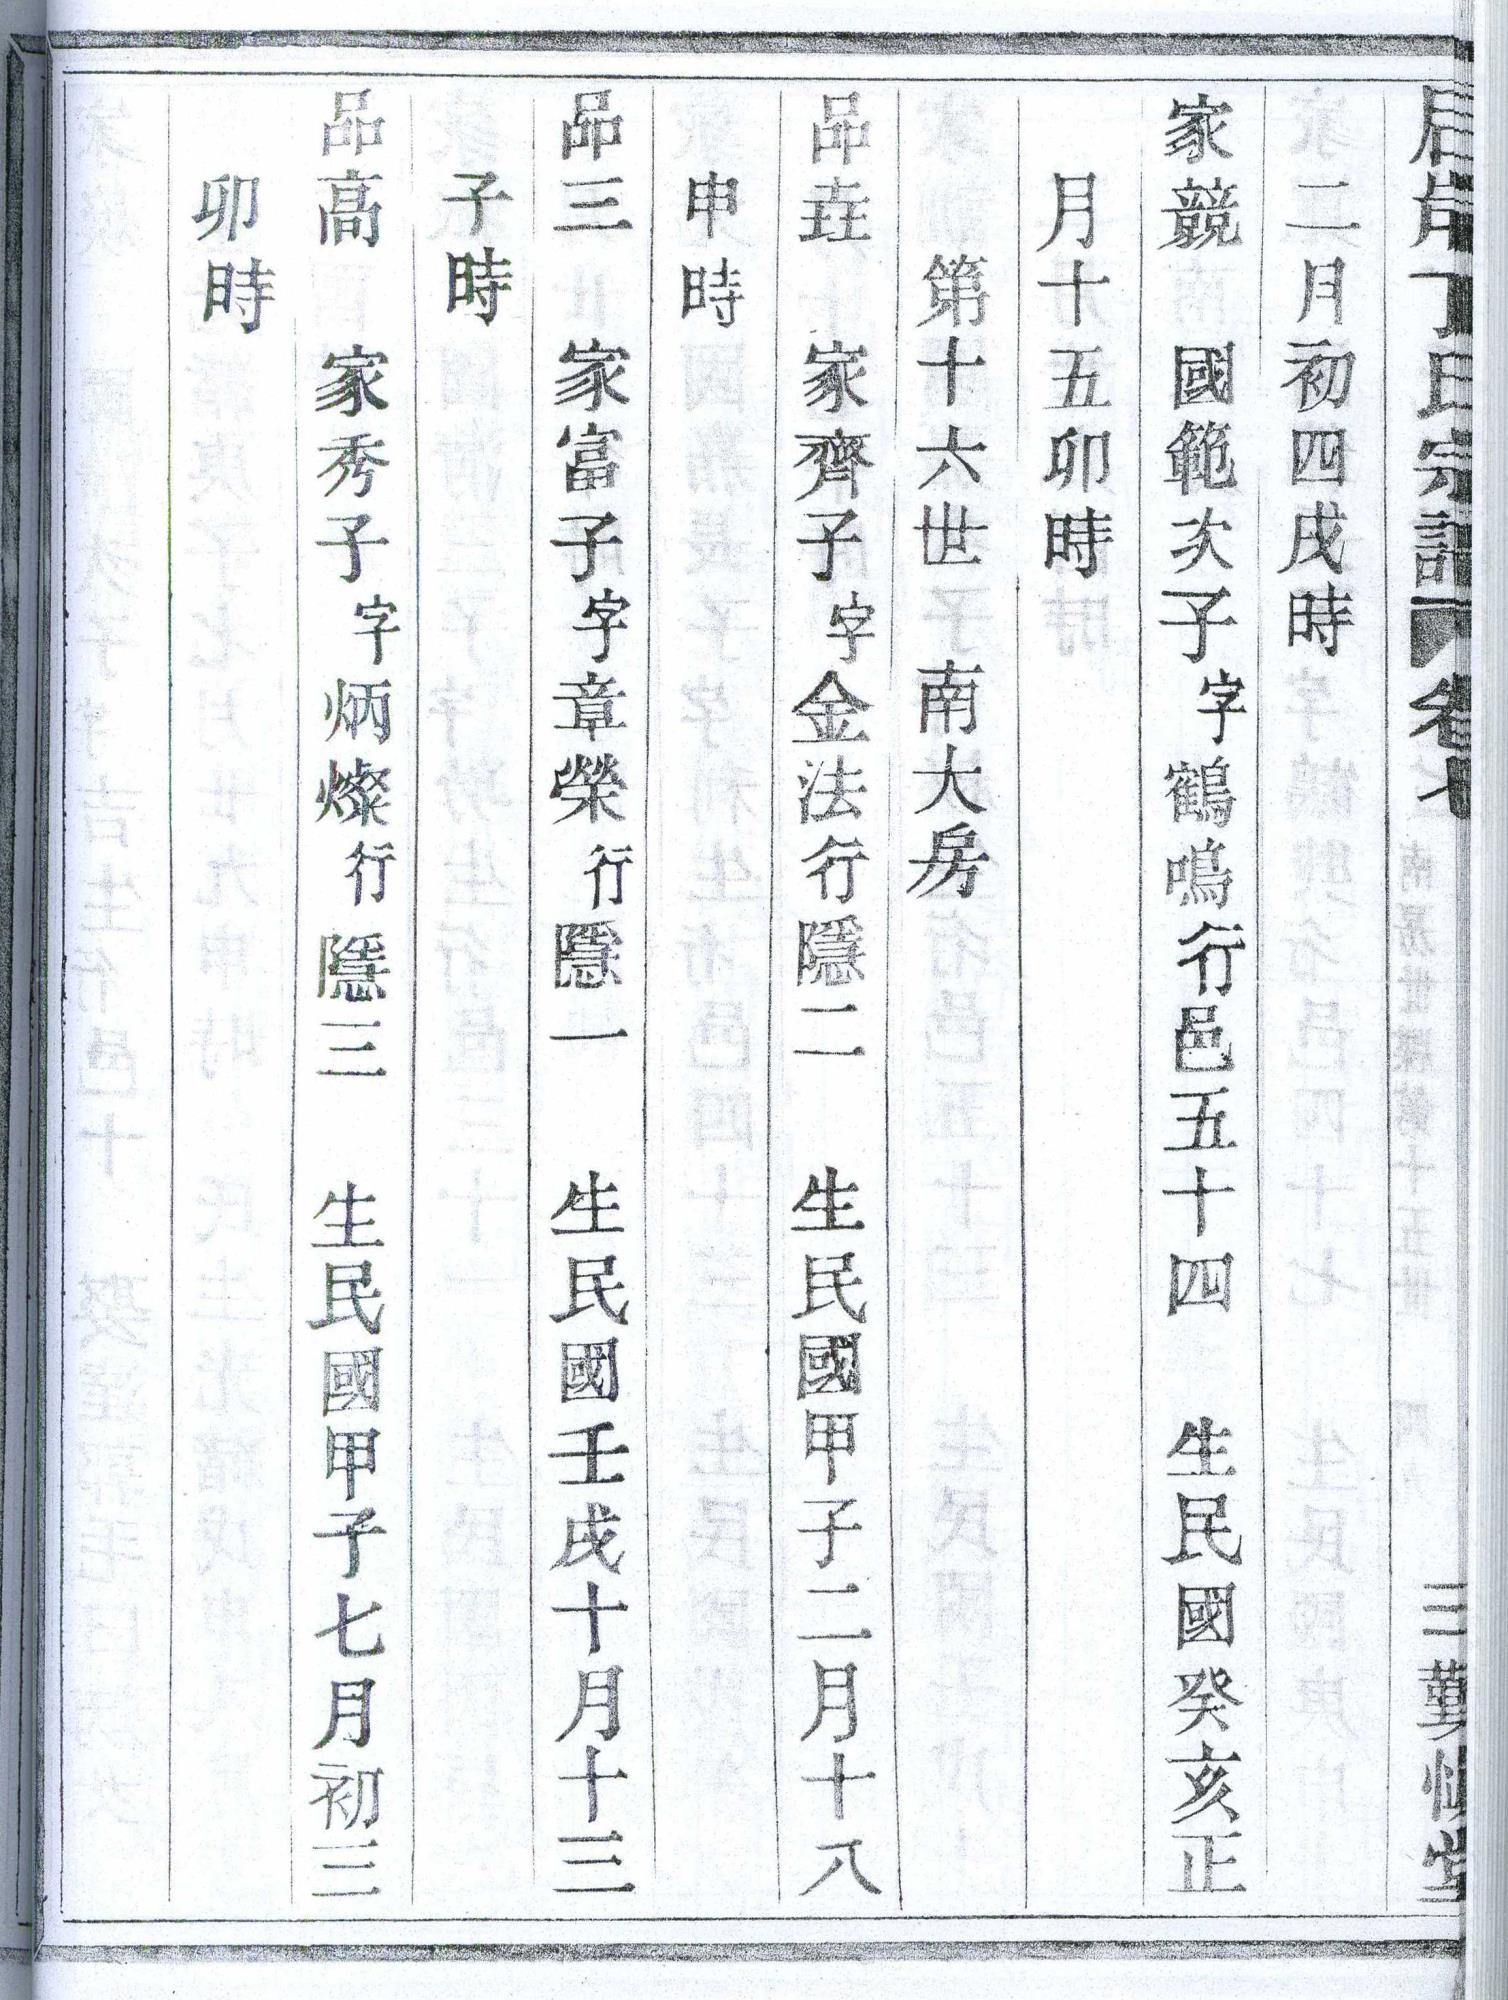 丁氏宗譜 卷七
南房世牒第十五世
三勤慎堂
二月初四戌時
家競 國範次子字鶴鳴行邑五十四 生民國癸亥正
月十五卯時
第十六世 南大房
品垚 家齊子字金法行隱二 生民國甲子二月十八
申時
品三 家富子字章榮行隱一 生民國壬戌十月十三
子時
品高 家秀子字炳燦行隱三 生民國甲子七月初三
卯時